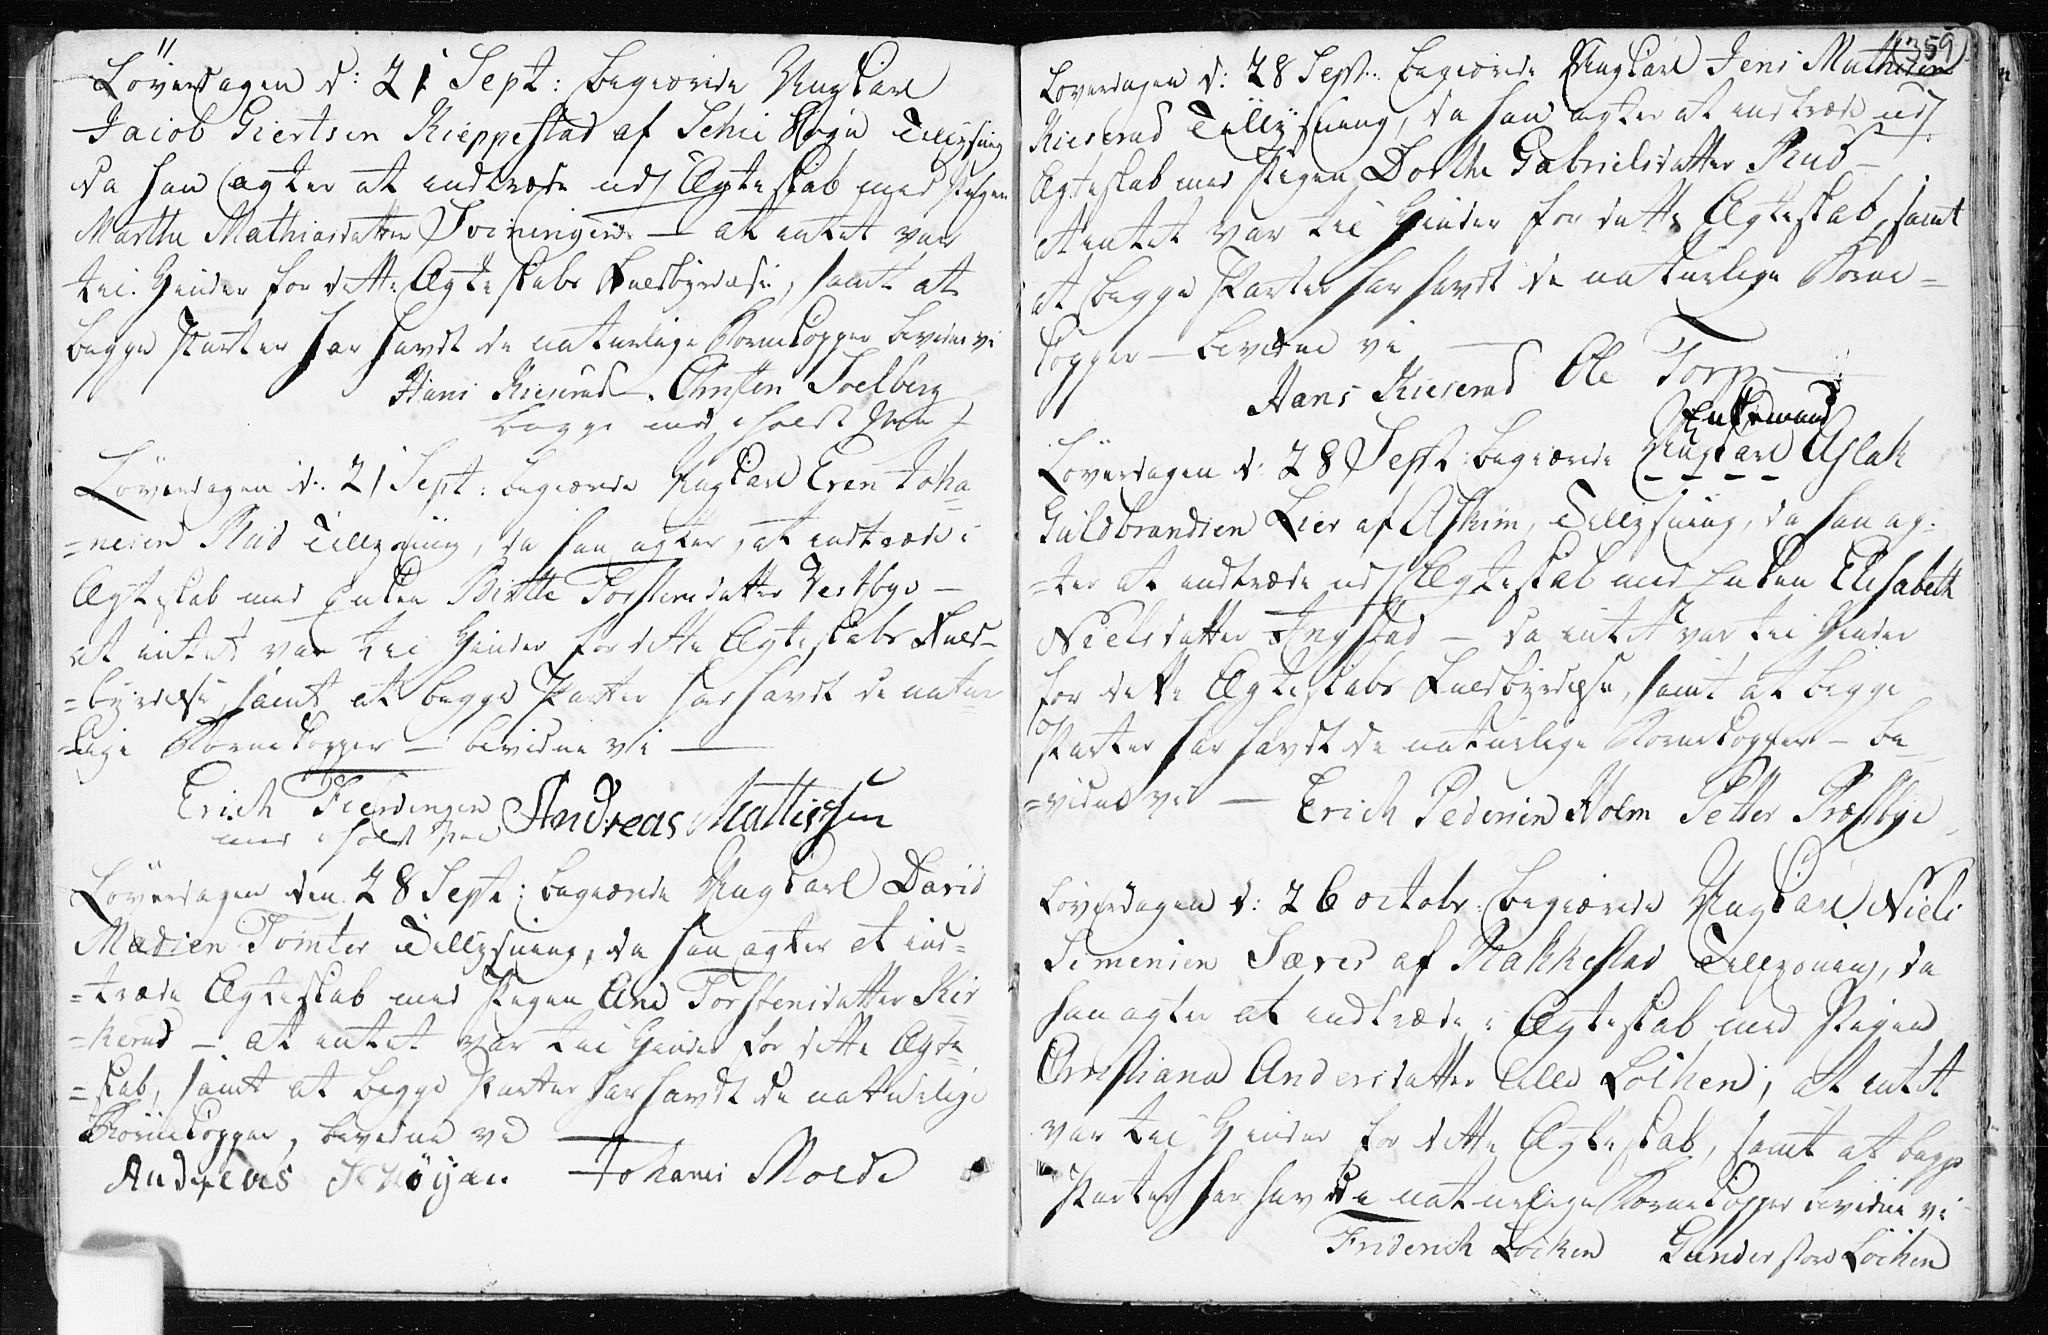 Löverdagen d: 21 Sept: begiærede Ungkarl
Jacob Giertsen Kieppestad af Schie Sogn Tillysning
da han agter at indtræde udj Ægteskab med Pigen
Marthe Mathiasdatter Svinninger — at intet var
til Hinder for dette Ægteskabs Fuldbyrdelse, samt at
begge Parter har havdt de naturlige Bornekopper bevidner vi
Hans Kieserud. Christen Soelberg
begge med iholdt Pen
Löverdagen d: 21 Sept: begiærede Ungkarl Even Joha
=nesen Rud Tillysning, da han agter, at indtræde i
Ægteskab med Enken Birtte Torstensdatter Vestbye —
at intet var til Hinder for dette Ægteskabs Fuld-
=byrdelse, samt at begge Parter har havdt de natur
=lige Bornekopper — bevidne vi —
Erich Fierdingen Andreas Mattissen
med iholdt Pen
Löverdagen den 28 Sept: begiærede Ungkarl David
Madsen Tomter Tillysning, da han agter at ind=
=træde Ægteskab med Pigen Ane Torstensdatter Kir
=kerud — at intet var til Hinder for dette Ægte
=skab, samt at begge Parter har havdt de naturlige
Börnekopper, bevidne vi —
Andreas Johanes Molde
359
Loverdagen d: 28 Sept: begiærede Ungkarl Jens Mathisen
Kieserud Tillysning, da han agter at indtræde udj
Ægteskab med Pigen Dorthe Gabrielsdatter Rud —
at intet var til Hinder for dette Ægteskab, samt
at begge Parter har havdt de naturlige Borne=
kopper — bevidne vi —
Hans Kieserud Ole Torp
Enkemand
Löverdagen d: 28 Sept: begiærede Ungkarl Aslak
Guldbrandsen Lier af Askim, Tillysning, da han ag=
=ter at indtræde udj Ægteskab med Enken Elisabeth
Nielsdatter Ingstad — da intet var til Hinder
for dette Ægteskabs Fuldbyrdelse, samt at begge
Parter har havdt de naturlige Bornekopper — be
=vidne vi — Erich Pedersen Holm Petter Præstbye
Loverdagen d: 26 octobr: begiærede Ungkarl Niels
Simensen Særes af Rakkestad Tillysning, da
han agter at indtræde i Ægteskab med Pigen
Christiana Andersdatter Lille Löchen; at intet
var til Hinder for dette Ægteskab, samt at begge
Parter har havdt de naturlige Bornekopper bevidne vi
Friderich Löcken Gunder store Löchen